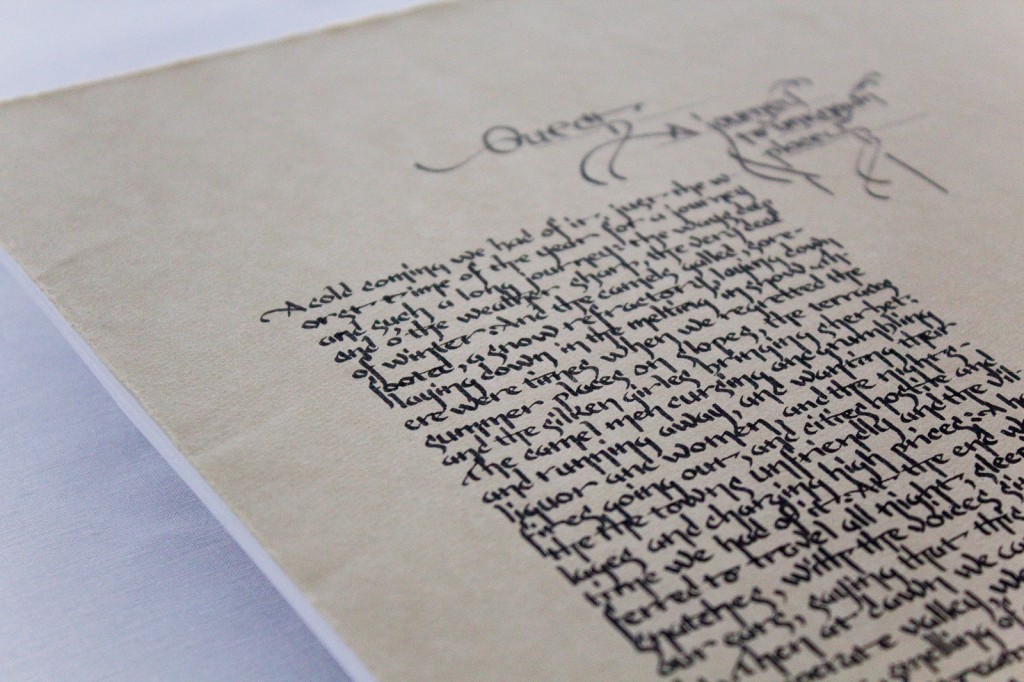 Quear A journey
A cold coming we had of it, just the w
orst time of the year for a journey
and such a long journey: the ways
and o'the weather sharp, the very dead
of winter. And the camels galled, sore-
footed, refractory, laying down
down in the melting snow. Th-
ere were times when we regretted the
summer places on slopes, the terraces
and the silken girles bringing sherbet.
The camel men cursing and grumbling
and running away, and wanting their
liquor and women, and the night-
fires going out, and cities hostile and
the the towns unfriendly and the vil
lages and charging high prices: A h
time we had of it. At the end we
ferred to travel all night, sleep
snatches, with the voices si
our ears, saying that this
Then at dawn we ca
erate valley, we
smelling of